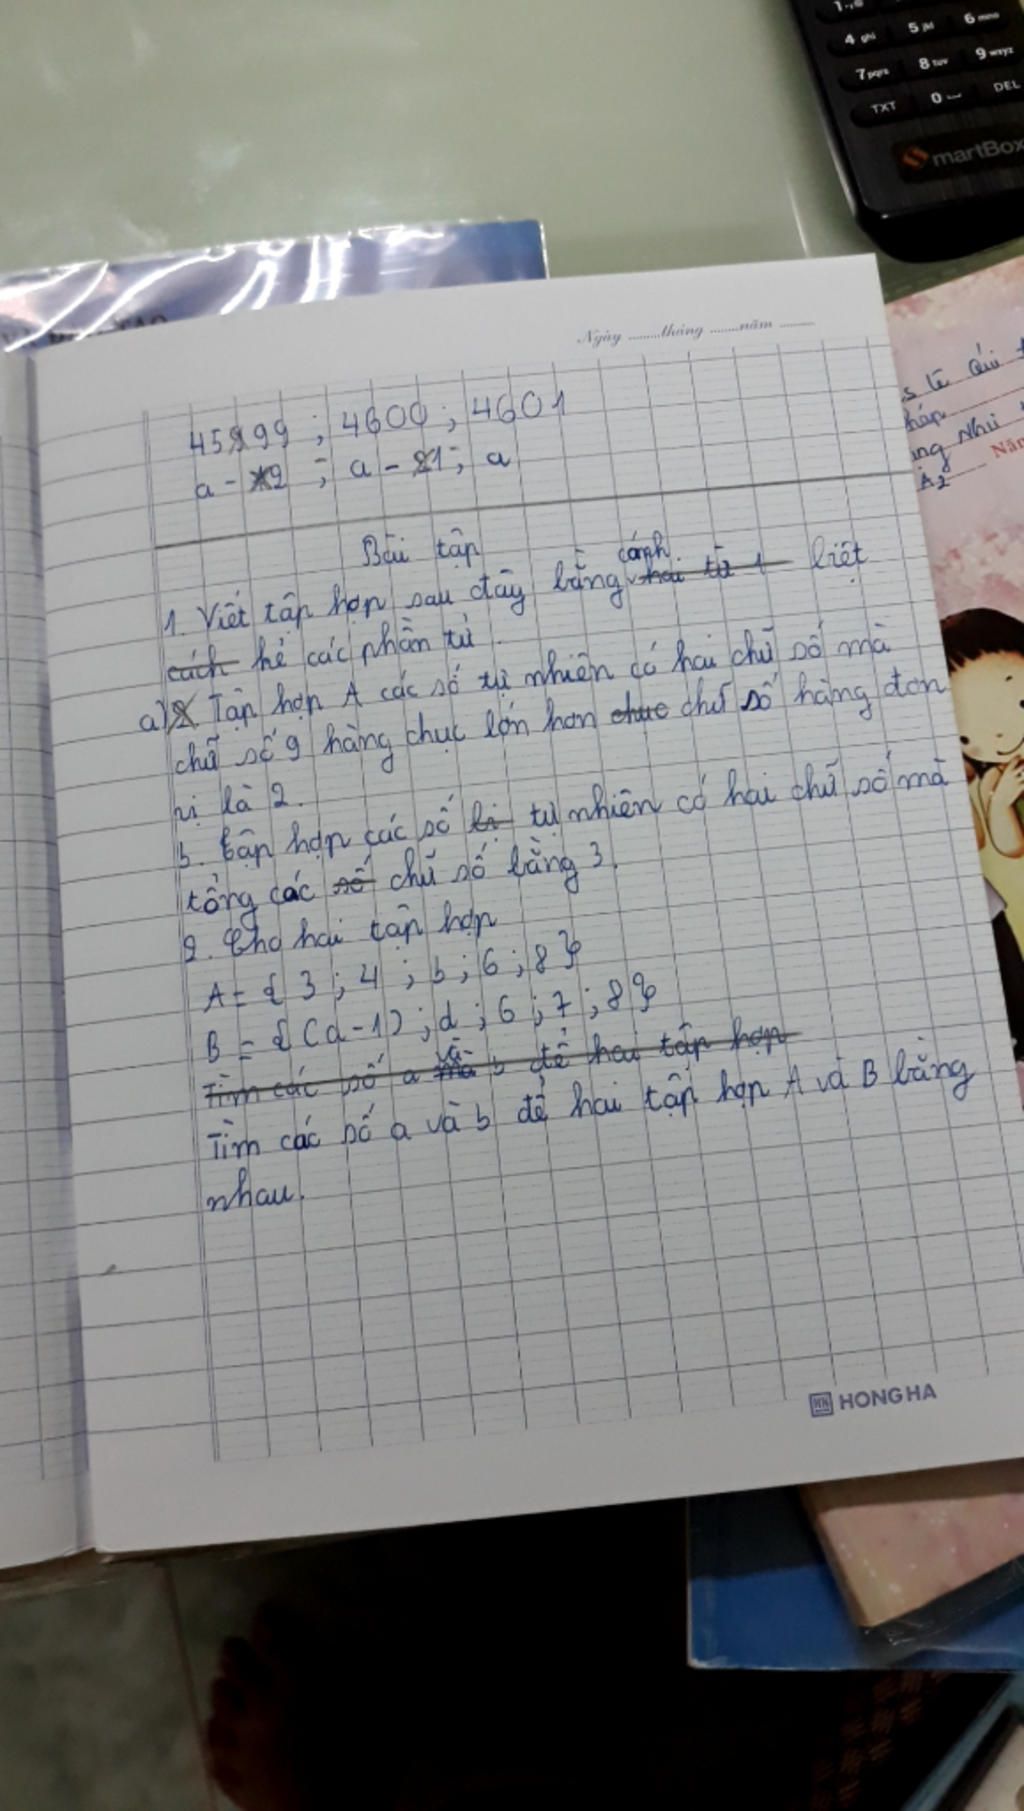 1
4 ghi 5 jkl 6 mno
7 pqrs 8 tuv 9 wxyz
TXT 0 DEL
martBox
Ngày ........tháng ........năm ........
45999 ; 4600 ; 4601
a - 2 ; a - 1 ; a
Bài tập
1. Viết tập hợp sau đây bằng cánh hai từ 1 liệt
cách kê các phần tử.
a) Tập hợp A các số tự nhiên có hai chữ số mà
chữ số 9 hàng chục lớn hơn chuc chữ số hàng đơn
vị là 2.
b. tập hợp các số li tự nhiên có hai chữ số mà
tổng các số chữ số bằng 3.
2. Cho hai tập hợp
A = { 3 ; 4 ; b ; 6 ; 8 }
B = { (a - 1) ; d ; 6 ; 7 ; 8 }
Tìm các số a và b để hai tập hợp
Tìm các số a và b để hai tập hợp A và B bằng
nhau.
HONG HA
Năm